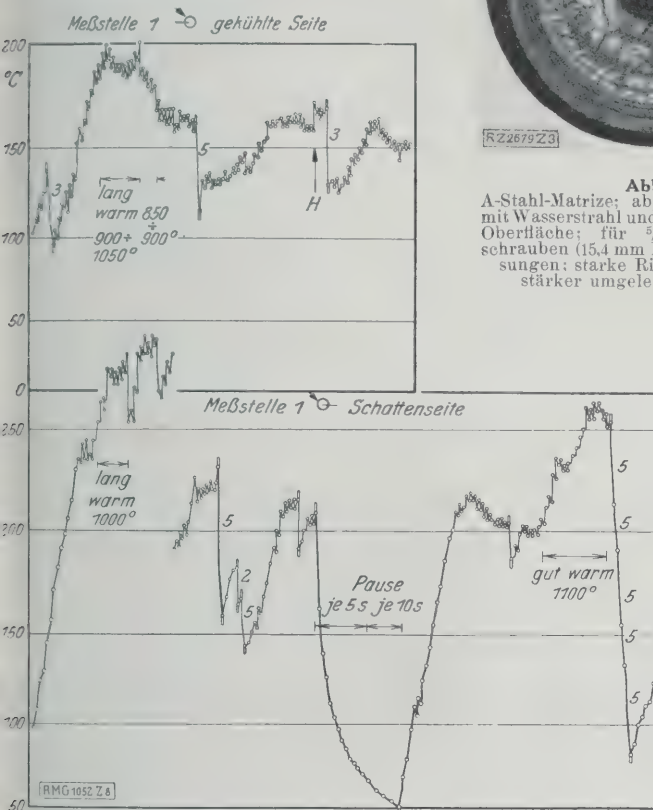 Meßstelle 1 gekühlte Seite
200
°C
150
100
50
0
3
5
3
H
lang
warm 850
÷
900÷ 900°
1050°
RZ2679Z3
A-Stahl-Matrize; ab
mit Wasserstrahl und
Oberfläche; für
schrauben (15,4 mm
sungen; starke Ri
stärker umgele
Meßstelle 1 Schattenseite
250
200
150
100
50
lang
warm
1000°
5
2
5
Pause
je 5s je 10s
gut warm
1100°
5
5
5
5
5
RMG 1052 Z 8